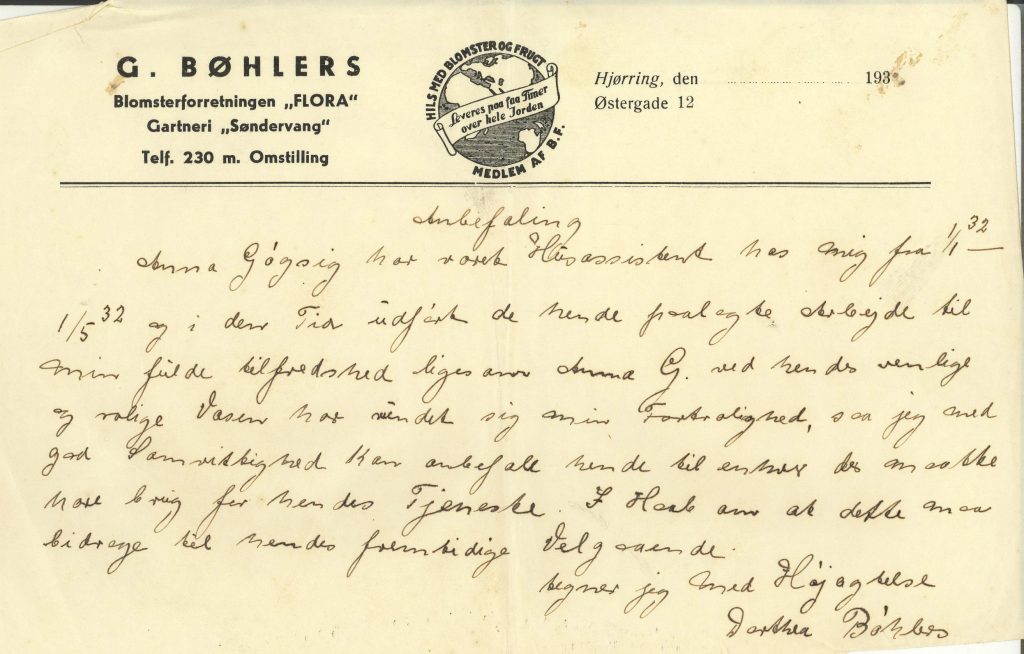 G. BØHLERS
Blomsterforretningen „FLORA“
Gartneri „Søndervang“
Telf. 230 m. Omstilling
HILS MED BLOMSTER OG FRUGT
Leveres paa faa Timer
over hele Jorden
MEDLEM AF B.F.
Hjørring, den 193
Østergade 12
Anbefaling
Anna Gøgsig har været Husassistent hos mig fra 1/1 32 —
1/5 32 og i den Tid udført de hende paalagte Arbejde til
min fulde tilfredshed ligesom Anna G. ved hendes venlige
og rolige Væsen har vundet sig min Fortrolighed, saa jeg med
god Samvittighed kan anbefale hende til enhver der maatte
have brug for hendes Tjeneste. I Haab om at dette maa
bidrage til hendes fremtidige Velgaaende.
tegner jeg med Højagtelse
Dorthea Bøhlers